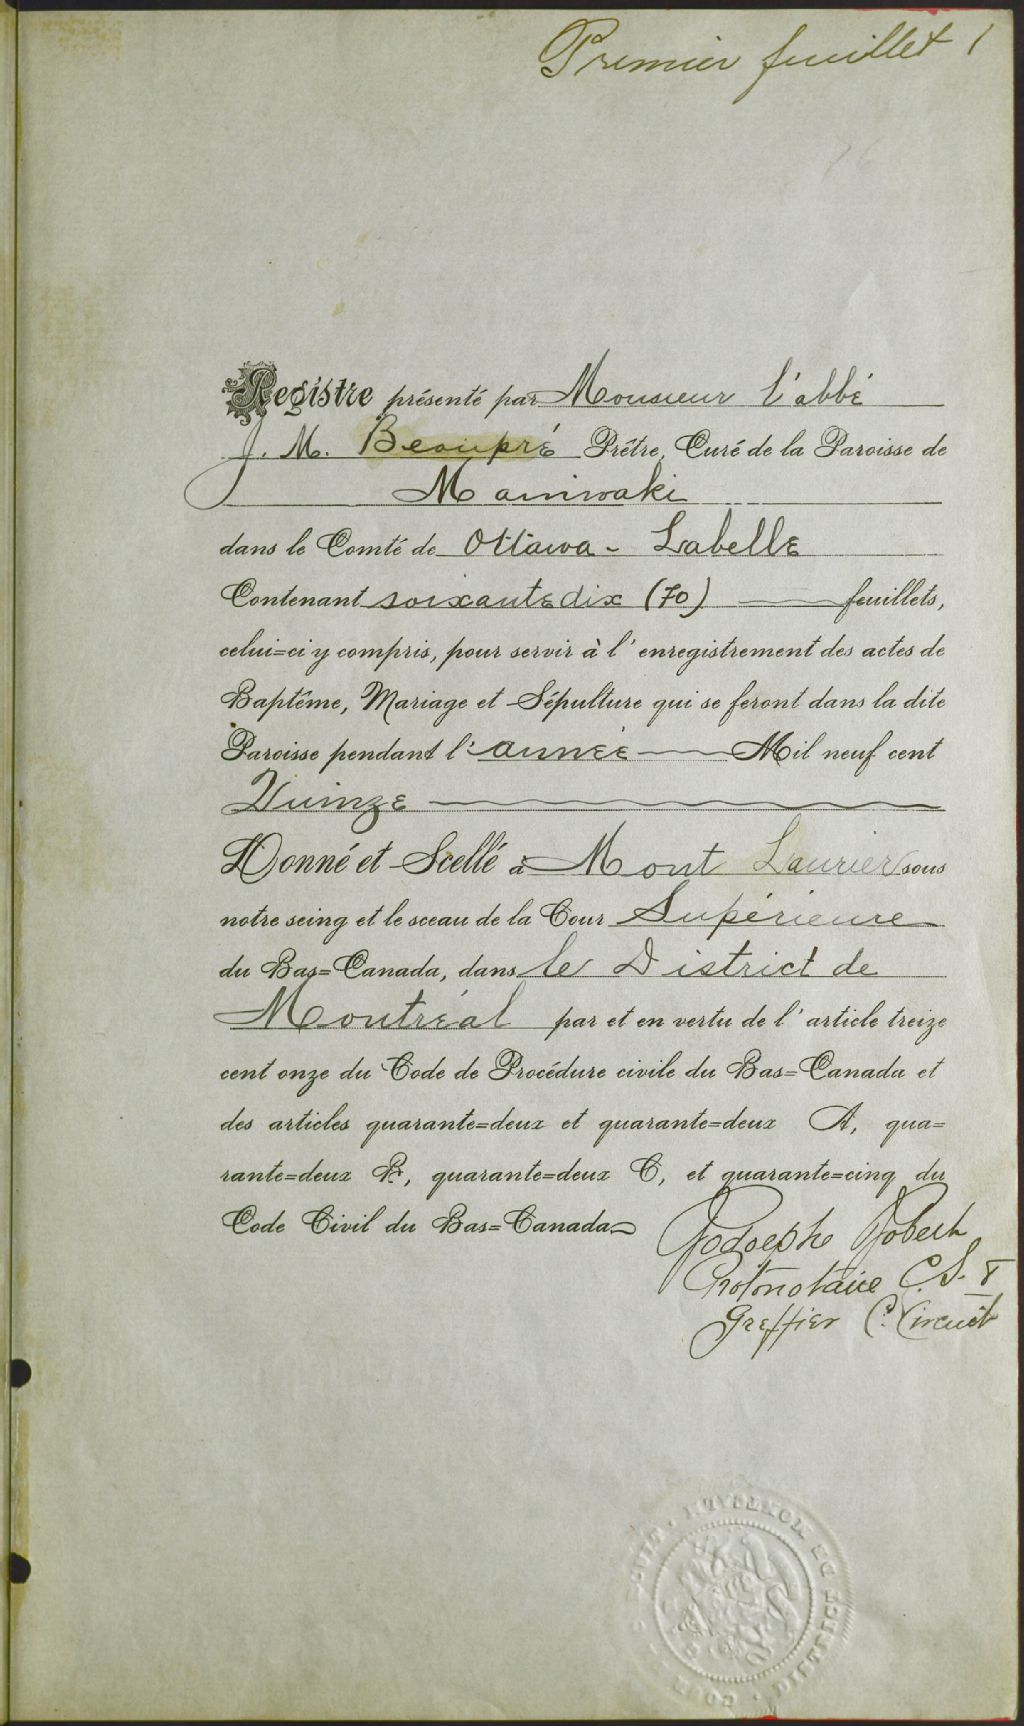 Premier feuillet 1
Registre présenté par Monsieur l'abbé
J. M. Beaupré Prêtre, Curé de la Paroisse de
Maniwaki
dans le Comté de Ottawa - Labelle
Contenant soixante dix (70) feuillets,
celui=ci y compris, pour servir à l'enregistrement des actes de
Baptême, Mariage et Sépulture qui se feront dans la dite
Paroisse pendant l'année Mil neuf cent
Quinze
Donné et Scellé à Mont Laurier sous
notre seing et le sceau de la Cour Supérieure
du Bas=Canada, dans le District de
Montréal par et en vertu de l'article treize
cent onze du Code de Procédure civile du Bas=Canada et
des articles quarante=deux et quarante=deux A, qua=
rante=deux B, quarante=deux C, et quarante=cinq du
Code Civil du Bas=Canada
Godolphe Robert
Protonotaire C.S. &
Greffier C. Circuit